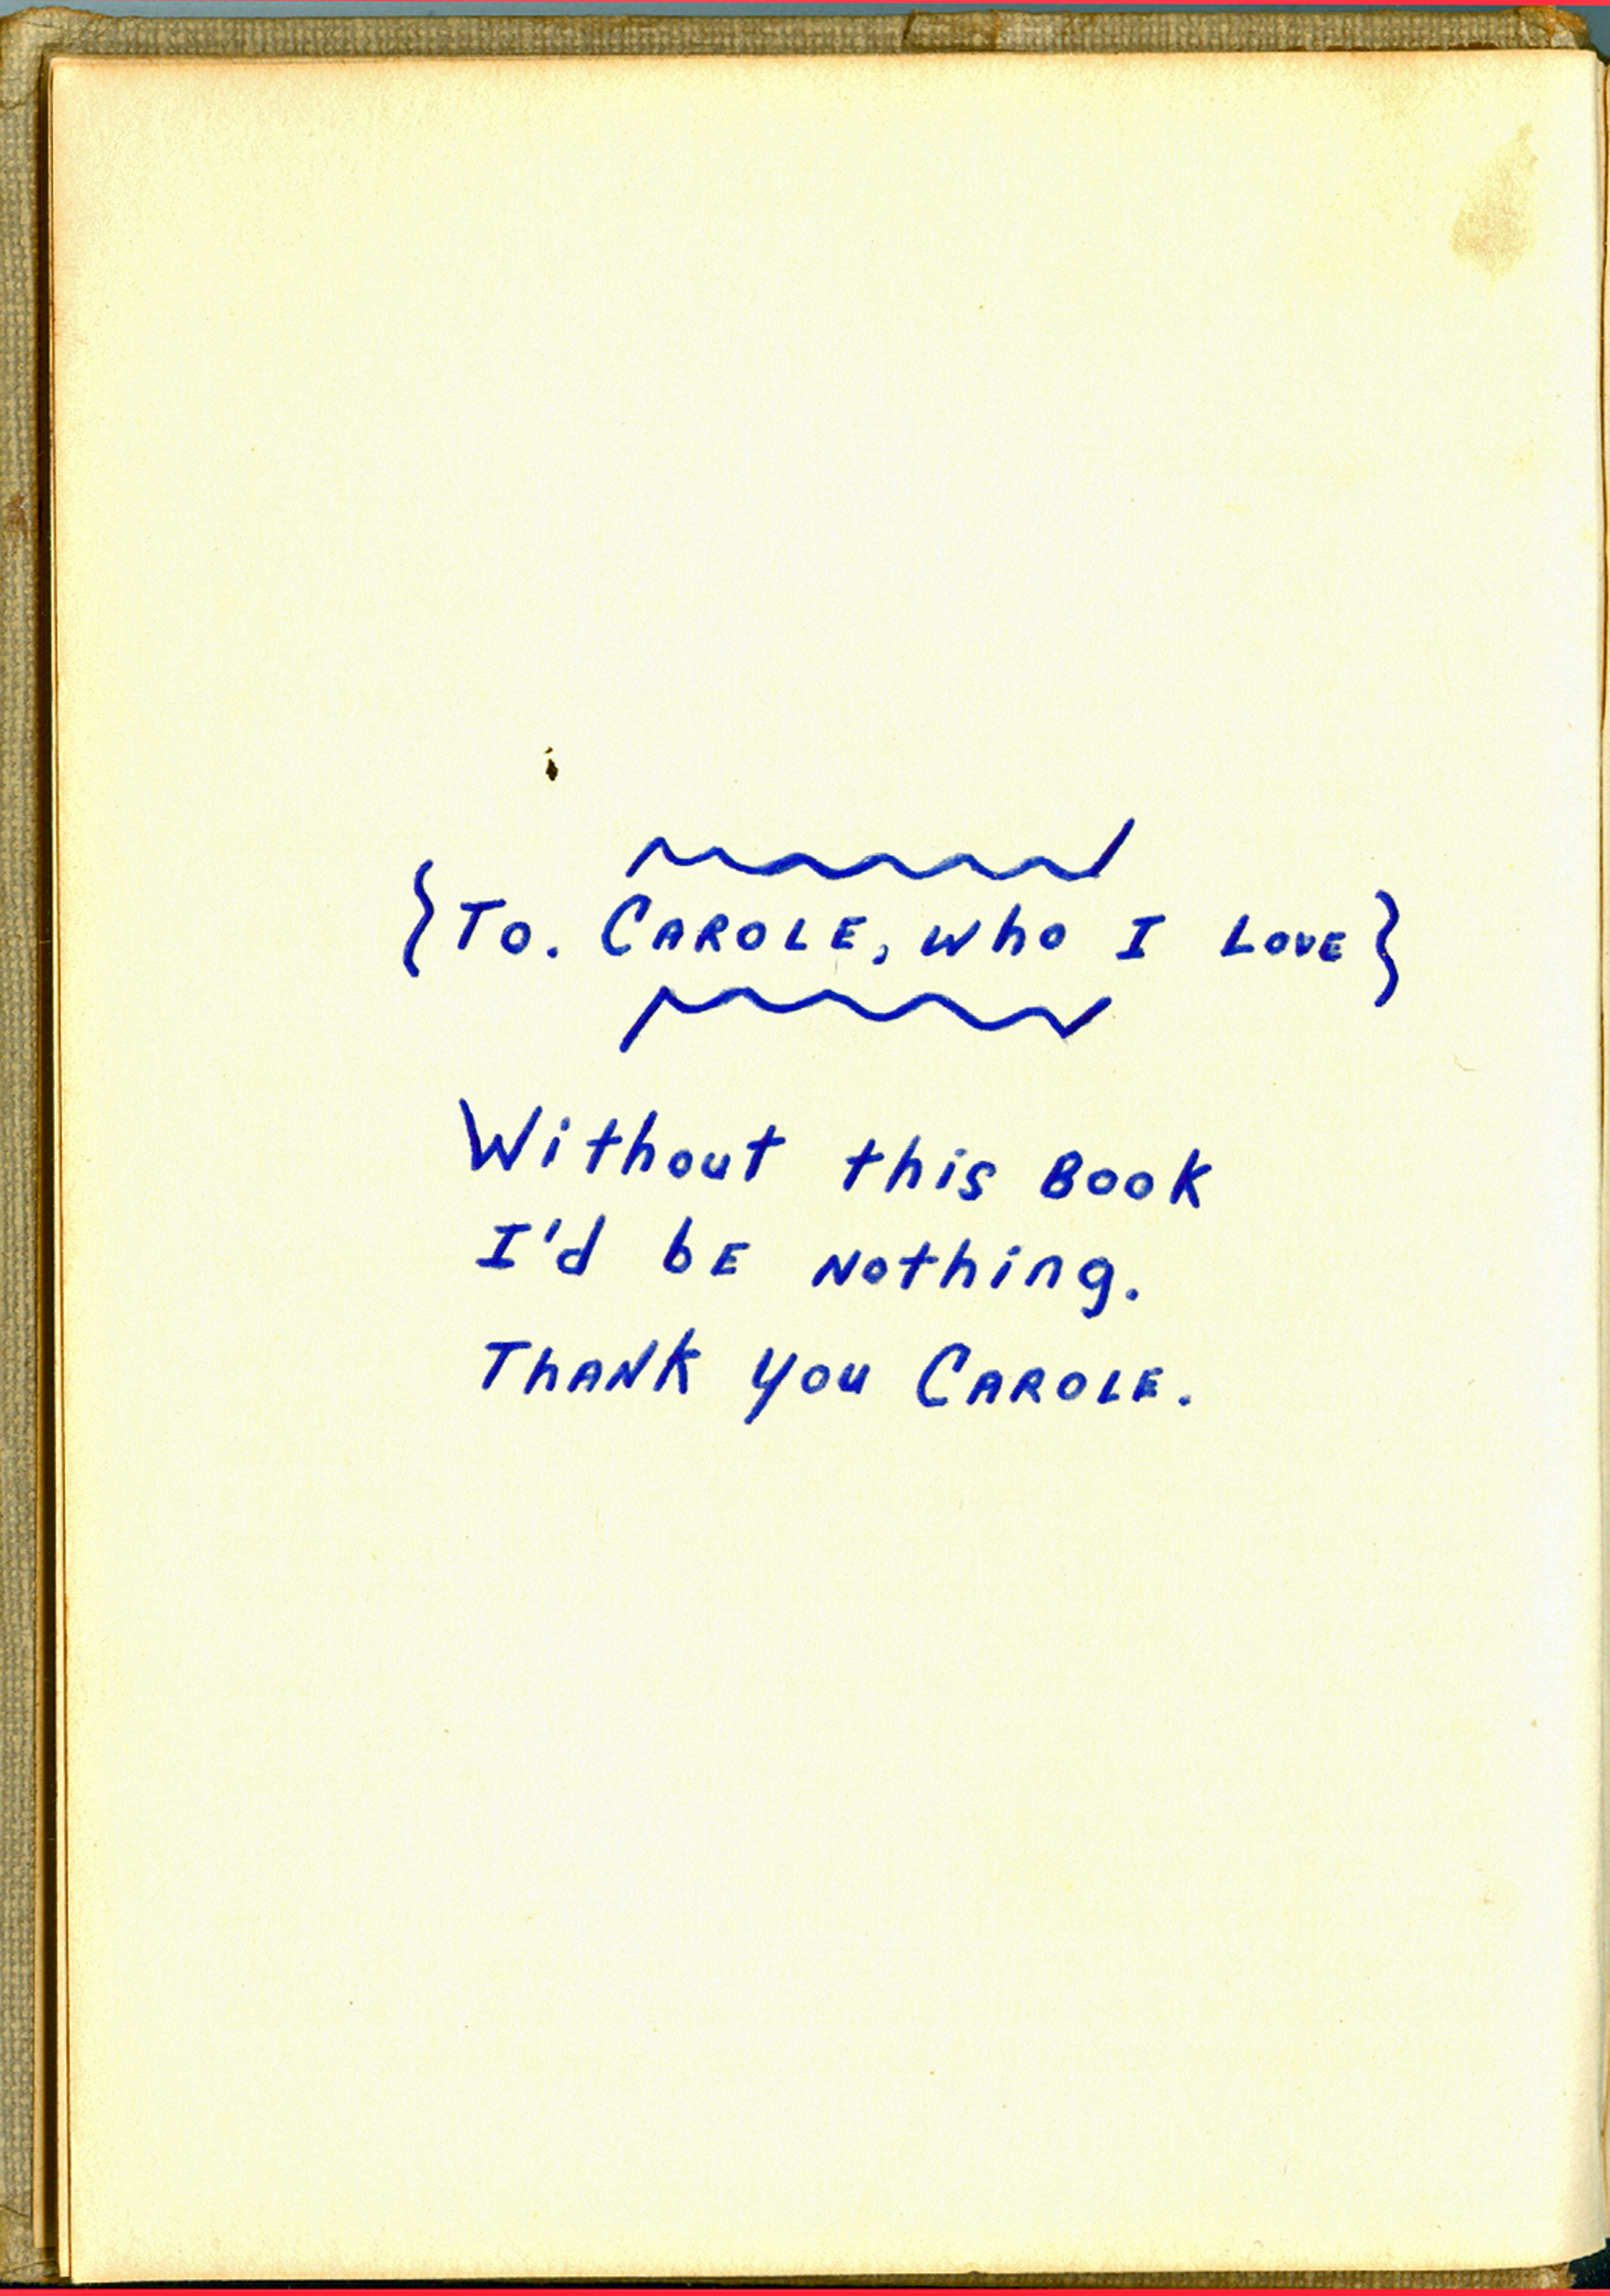 {To. CAROLE, who I LOVE}
Without this Book
I'd bE Nothing.
ThANK you CAROLE.